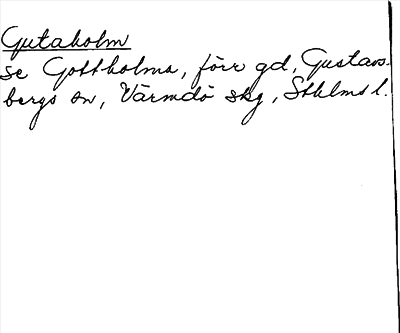 Gutaholm
se Gottholma, förr gd, Gustavs-
bergs sn, Värmdö skg, Sthlms l.